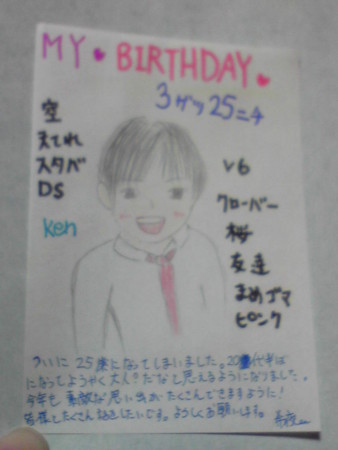 MY BIRTHDAY
3ガツ25ニチ
空
スタバ
DS
ken
V6
クローバー
桜
友達
まめゴマ
ピンク
ついに25歳になってしまいました。20代半ば
になってようやく大人?だなと思えるようになりました。
今年も素敵な思い出がたくさんできますように!
皆様とたくさんお話したいです。よろしくお願いします。